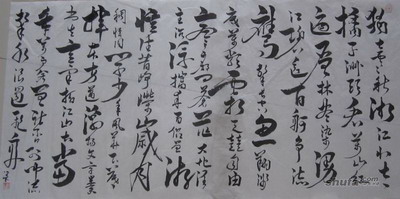 独立寒秋湘江北去
橘子洲头看万山红
遍层林尽染漫
江碧透百舸争流
鹰击长空鱼翔浅
底万类霜天竞自由
怅寥廓问苍茫大地谁
主沉浮携来百侣曾游
忆往昔峥嵘岁月
稠恰同学少年风华正茂
挥斥方遒激扬文字粪
土江山当
年万户侯曾记否到中流
击水浪遏飞舟